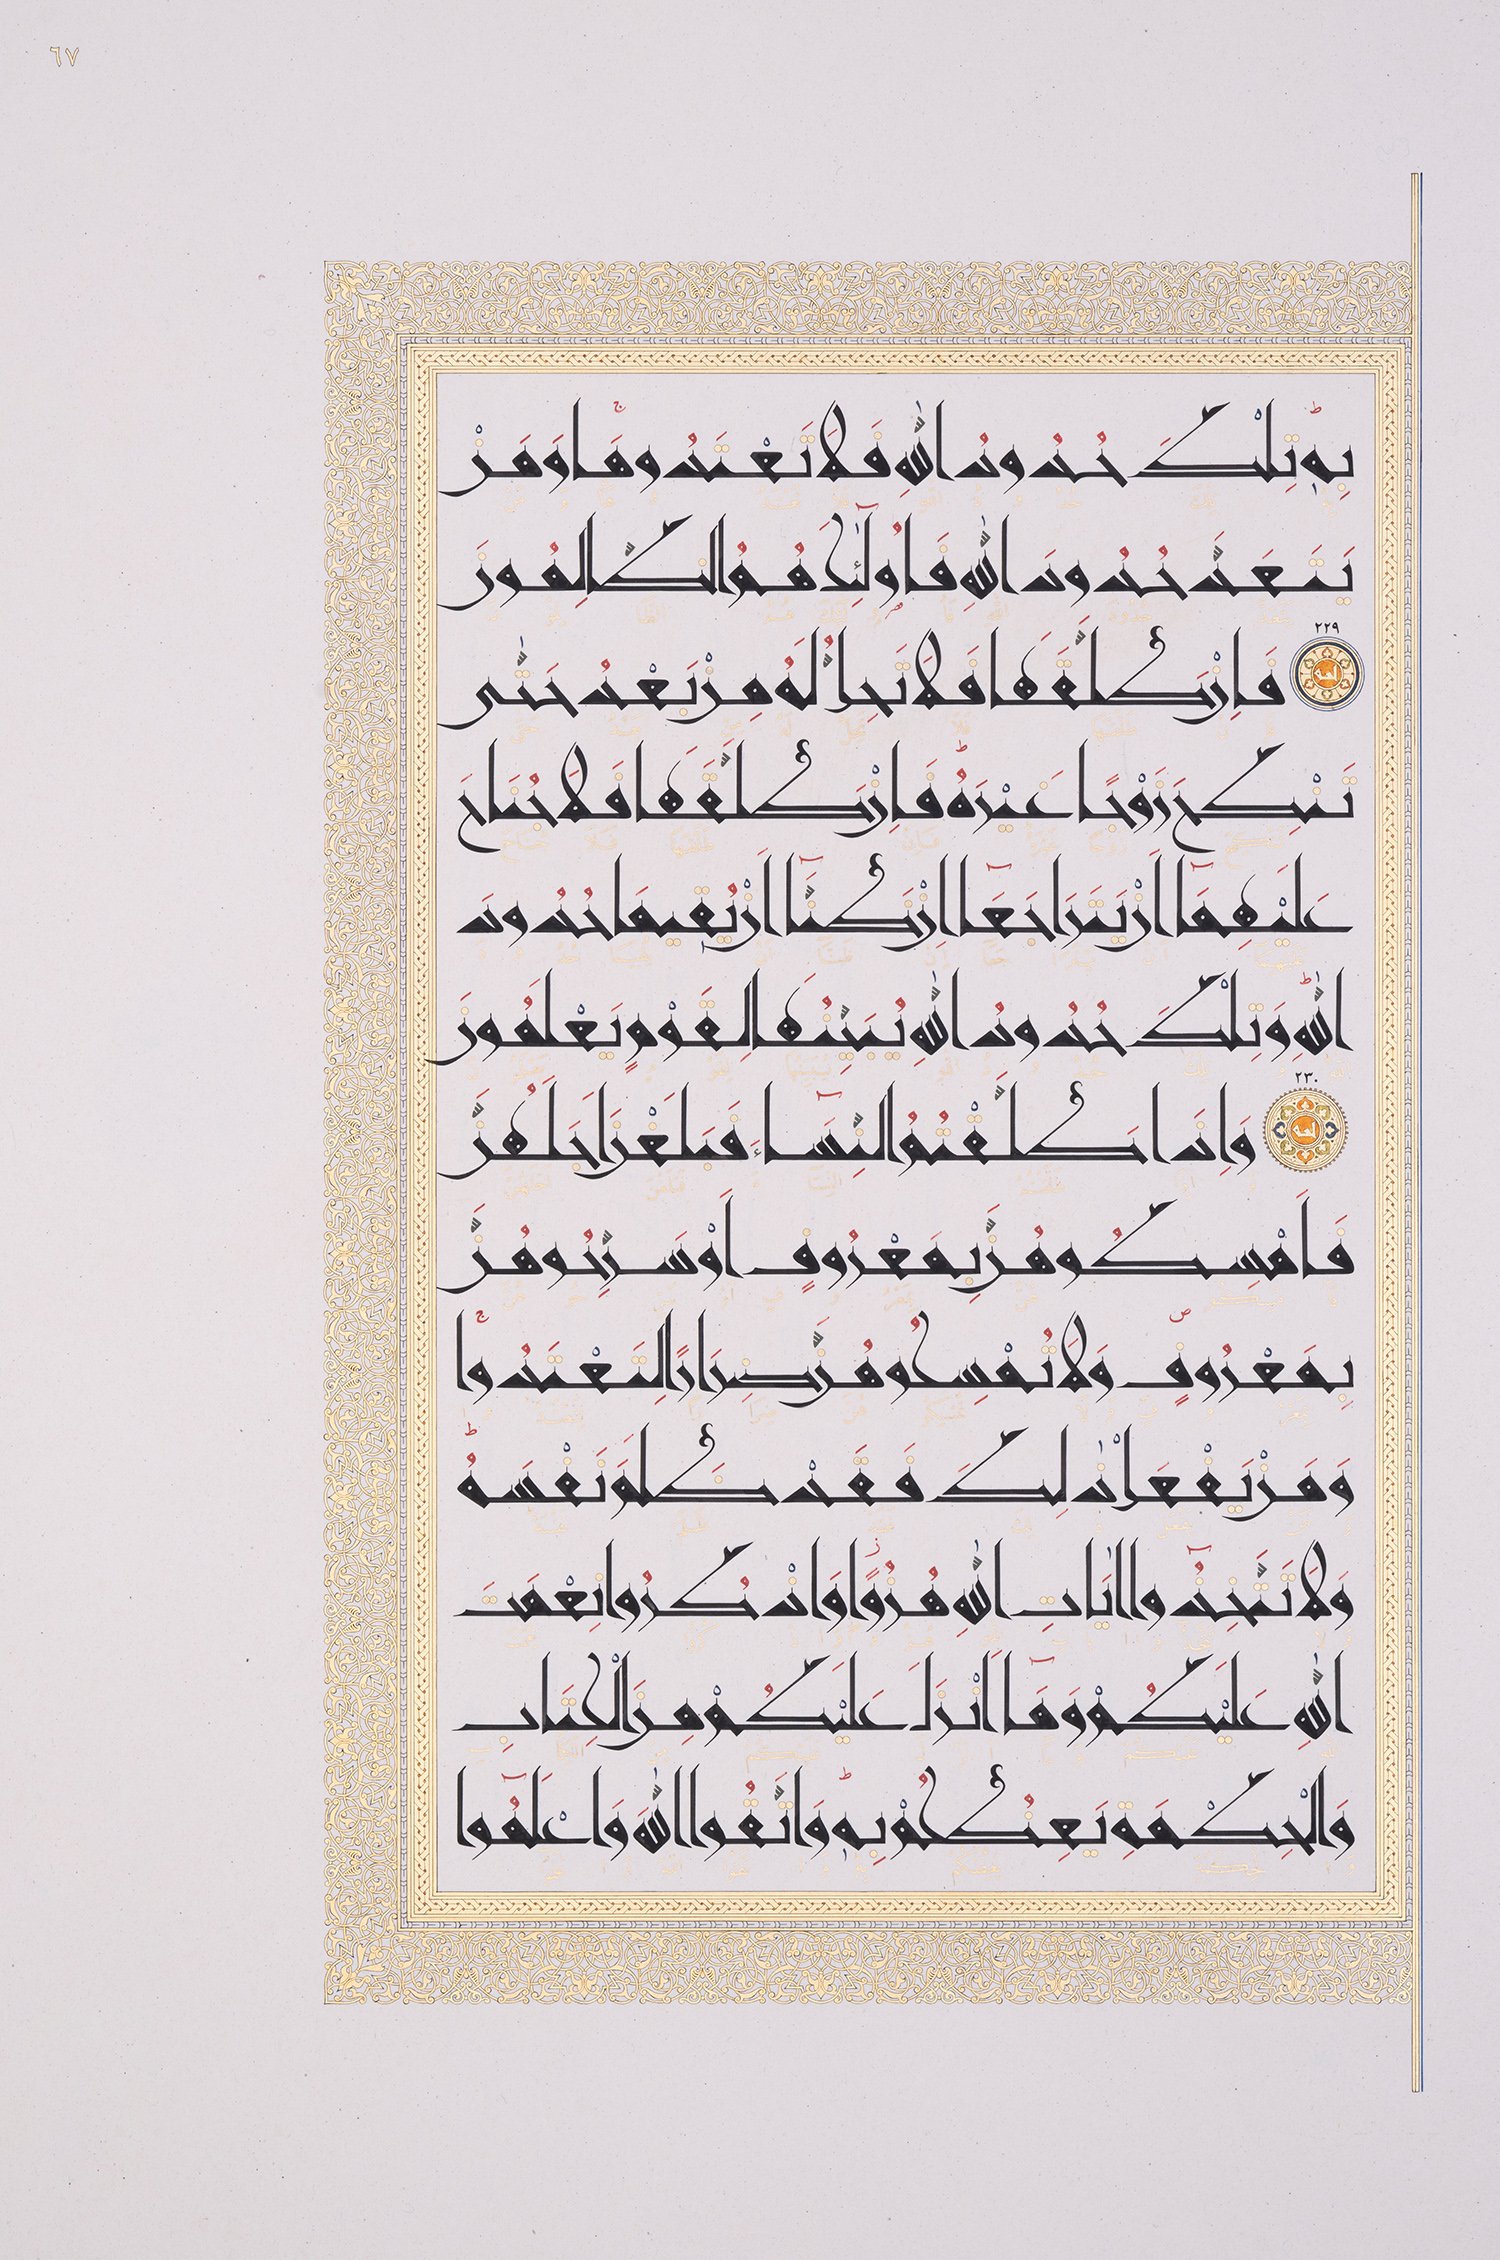 ٦٧
بِهٖؕ تِلْكَ حُدُودُ اللّٰهِ فَلَا تَعْتَدُوهَاۚ وَمَنْ
يَتَعَدَّ حُدُودَ اللّٰهِ فَاُولٰٓئِكَ هُمُ الظَّالِمُونَ
٢٢٩ فَاِنْ طَلَّقَهَا فَلَا تَحِلُّ لَهُ مِنْ بَعْدُ حَتّٰى
تَنْكِحَ زَوْجًا غَيْرَهُؕ فَاِنْ طَلَّقَهَا فَلَا جُنَاحَ
عَلَيْهِمَٓا اَنْ يَتَرَاجَعَٓا اِنْ ظَنَّٓا اَنْ يُقٖيمَا حُدُودَ
اللّٰهِؕ وَتِلْكَ حُدُودُ اللّٰهِ يُبَيِّنُهَا لِقَوْمٍ يَعْلَمُونَ
٢٣٠ وَاِذَا طَلَّقْتُمُ النِّسَٓاءَ فَبَلَغْنَ اَجَلَهُنَّ
فَاَمْسِكُوهُنَّ بِمَعْرُوفٍ اَوْ سَرِّحُوهُنَّ
بِمَعْرُوفٍࣕ وَلَا تُمْسِكُوهُنَّ ضِرَارًا لِتَعْتَدُواۚ
وَمَنْ يَفْعَلْ ذٰلِكَ فَقَدْ ظَلَمَ نَفْسَهُؕ
وَلَا تَتَّخِذُٓوا اٰيَاتِ اللّٰهِ هُزُوًاؗ وَاذْكُرُوا نِعْمَتَ
اللّٰهِ عَلَيْكُمْ وَمَٓا اَنْزَلَ عَلَيْكُمْ مِنَ الْكِتَابِ
وَالْحِكْمَةِ يَعِظُكُمْ بِهٖؕ وَاتَّقُوا اللّٰهَ وَاعْلَمُٓوا